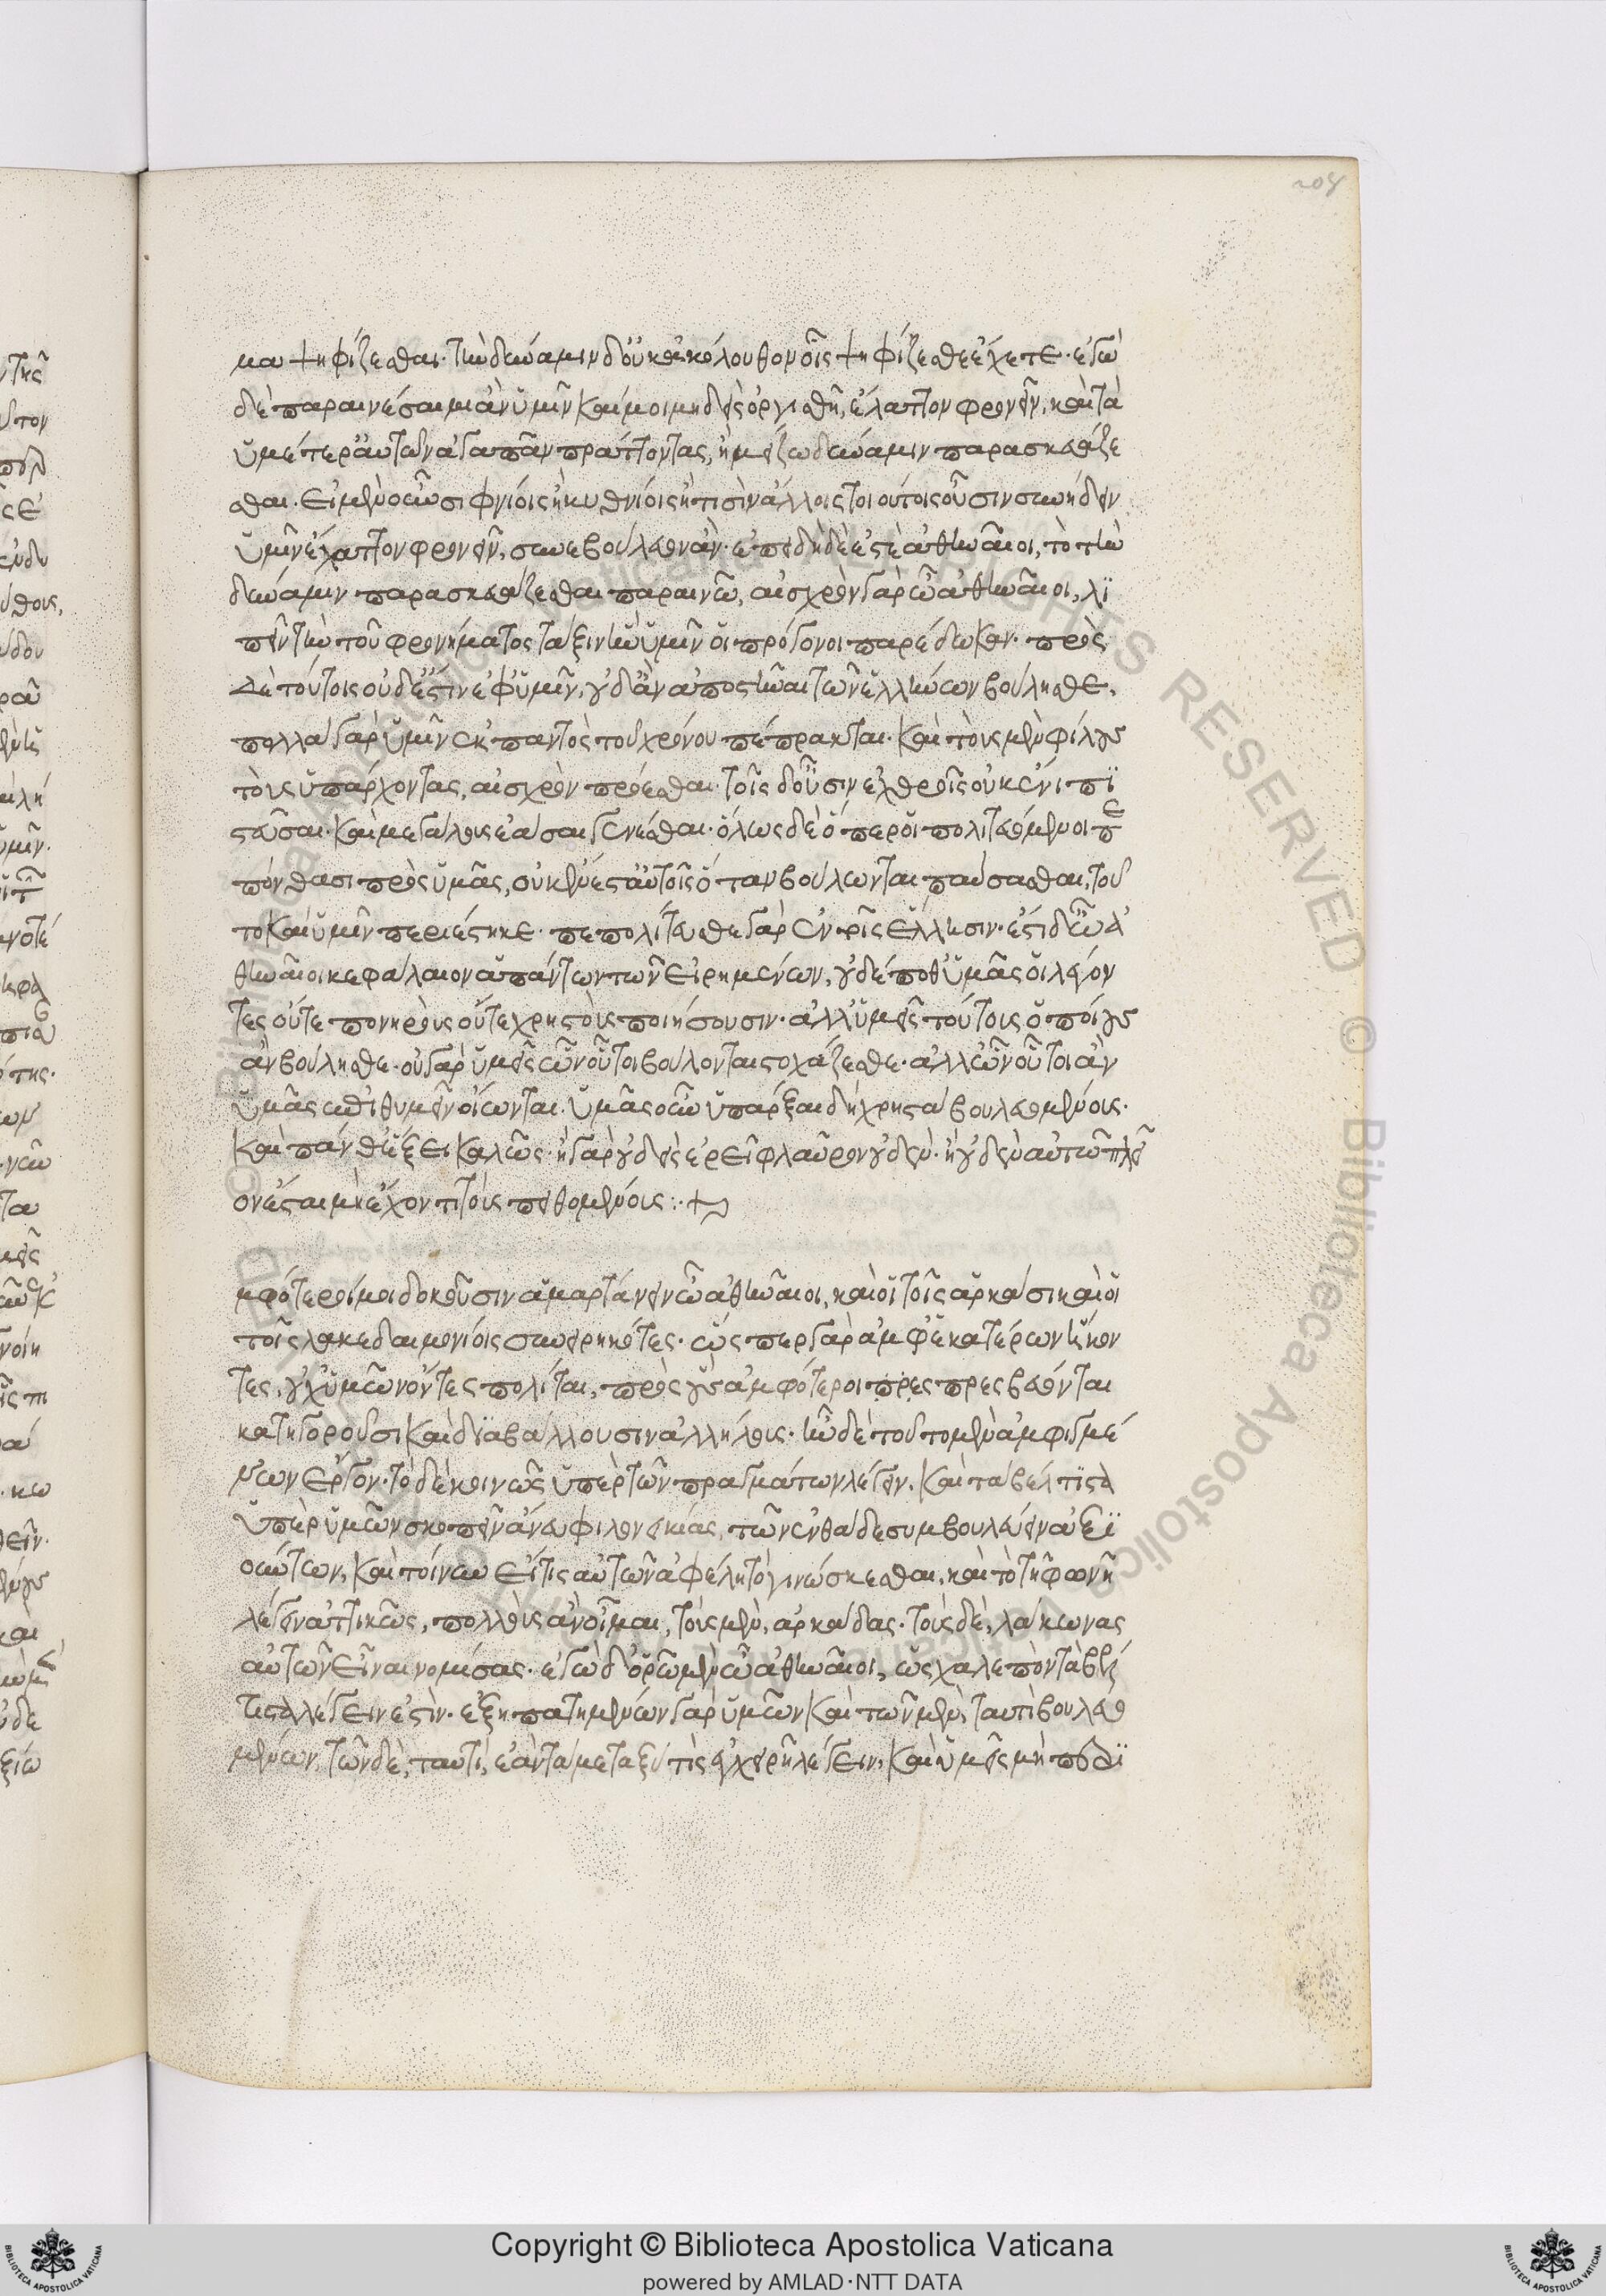 208
μα ψηφίζεσθαι· τὴν δύναμιν δ' οὐκ ἀκόλουθον οἷς ψηφίζεσθε ἔχετε· ἐγὼ
δὲ παραινέσαιμι ἂν ὑμῖν καί μοι μηδεὶς ὀργισθῇ, ἔλαττον φρονεῖν, καὶ τὰ
ὑμέτερ' αὐτῶν ἀγαπᾶν πράττοντας, ἢ μείζω δύναμιν παρασκευάζε
σθαι. εἰ μὲν οὖν σιφνίοις ἢ κυθνίοις ἤ τισιν ἄλλοις τοιούτοις οὖσιν συνῄδειν
ὑμῖν ἔλαττον φρονεῖν, συνεβούλευον ἄν· ἐπειδὴ δὲ ἐστὲ ἀθηναῖοι, τὸ τὴν
δύναμιν παρασκευάζεσθαι παραινῶ, αἰσχρὸν γὰρ ὦ ἀθηναῖοι, λι
πεῖν τὴν τοῦ φρονήματος τάξιν ἣν ὑμῖν οἱ πρόγονοι παρέδωκαν· πρὸς
δὲ τούτοις οὐδ' ἔστιν ἐφ' ὑμῖν, οὐδ' ἂν ἀποστῆναι τῶν ἑλλήνων βούλησθε,
πολλὰ γὰρ ὑμῖν ἐκ παντὸς τοῦ χρόνου πέπρακται· καὶ τοὺς μὲν φίλους
τοὺς ὑπάρχοντας, αἰσχρὸν προέσθαι· τοῖς δ' οὖσιν ἐχθροῖς οὐκ ἔνι πι
στεῦσαι· καὶ μεγάλους ἐᾶσαι γενέσθαι· ὅλως δὲ ὅπερ οἱ πολιτευόμενοι πε
πόνθασι πρὸς ὑμᾶς, οὐκ ἔνεστ' αὐτοῖς ὅταν βούλωνται παύσασθαι, τοῦ
το καὶ ὑμῖν περιέστηκε· πεπολίτευσθε γὰρ ἐν τοῖς ἕλλησιν· ἔστι δ' ὦ ἀ
θηναῖοι κεφάλαιον ἁπάντων τῶν εἰρημένων, οὐδέποθ' ὑμᾶς οἱ λέγον
τες οὔτε πονηροὺς οὔτε χρηστοὺς ποιήσουσιν· ἀλλ' ὑμεῖς τούτοις ὁποίους
ἂν βούλησθε· οὐ γὰρ ὑμεῖς ὧν οὗτοι βούλονται στοχάζεσθε· ἀλλ' ὧν οὗτοι ἂν
ὑμᾶς ἐπιθυμεῖν οἴωνται. ὑμᾶς οὖν ὑπάρξαι δὴ χρηστὰ βουλευομένοις·
καὶ πάνθ' ἕξει καλῶς· ἢ γὰρ οὐδεὶς ἐρεῖ φλαῦρον οὐδέν· ἢ οὐδὲν αὐτῶν πλεῖ
ον ἔσται μὴ ἔχοντι τοῖς πειθομένοις :·
μφότεροί μοι δοκοῦσιν ἁμαρτάνειν ὦ ἀθηναῖοι, καὶ οἱ τοῖς ἀρκάσι καὶ οἱ
τοῖς λακεδαιμονίοις συνειρηκότες· ὥσπερ γὰρ ἀμφ' ἑκατέρων ἥκον
τες, οὐχ' ὑμῶν ὄντες πολίται, πρὸς οὓς ἀμφότεροι πρες πρεσβεύονται
κατηγοροῦσι καὶ διαβάλλουσιν ἀλλήλους· ἦν δὲ τοῦτο μὲν ἀμφιγμέ
νων ἔργον· τὸ δὲ κοινῶς ὑπὲρ τῶν πραγμάτων λέγειν, καὶ τὰ βέλτιστα
ὑπὲρ ὑμῶν σκοπεῖν ἄνευ φιλονεικίας, τῶν ἐνθάδε συμβουλεύειν ἀξι
ούντων, καὶ τοίνυν εἴ τις αὐτῶν ἀφέλῃ τὸ γινώσκεσθαι, καὶ τὸ τῇ φωνῇ
λέγειν ἀττικῶς, πολλοὺς ἂν οἶμαι, τοὺς μὲν, ἀρκάδας· τοὺς δὲ, λάκωνας
αὐτῶν εἶναι νομίσας· ἐγὼ δ' ὁρῶ μὲν ὦ ἀθηναῖοι, ὡς χαλεπὸν τὰ βέλ
τιστα λέγειν ἐστίν· ἐξηπατημένων γὰρ ὑμῶν καὶ τῶν μὲν, ταυτὶ βουλευο
μένων, τῶν δὲ, ταυτὶ, ἐὰν τὰ μεταξύ τις ἐγχειρῇ λέγειν, καὶ ὑμεῖς μὴ περι